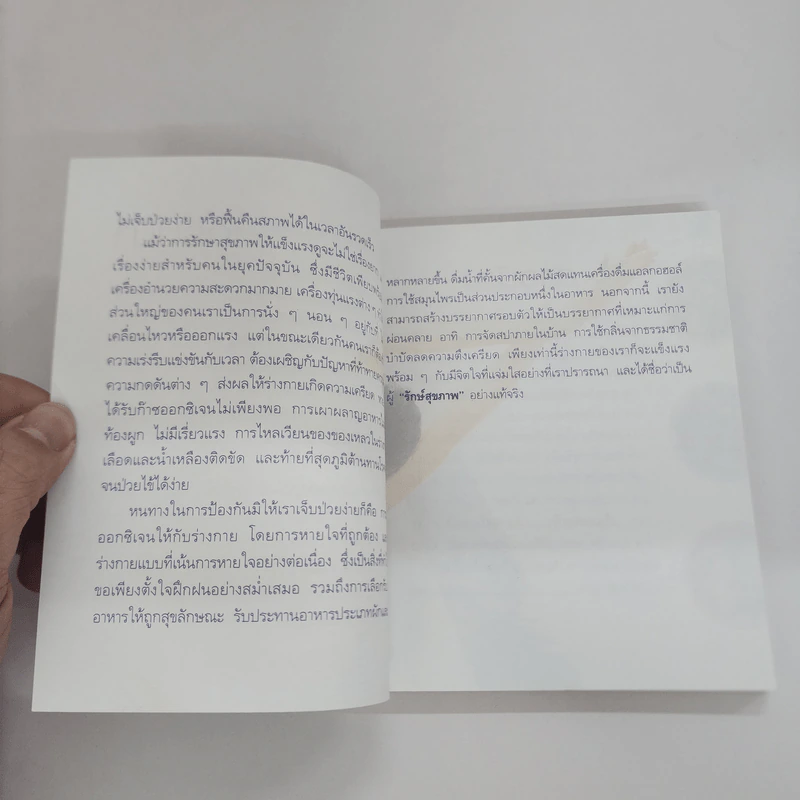 ไม่เจ็บป่วยง่าย หรือฟื้นคืนสภาพได้ในเวลาอันรวดเร็ว
แม้ว่าการรักษาสุขภาพให้แข็งแรงดูจะไม่ใช่เรื่อง
เรื่องง่ายสำหรับคนในยุคปัจจุบัน ซึ่งมีชีวิตเพียบ
เครื่องอำนวยความสะดวกมากมาย เครื่องทุ่นแรงต่าง ๆ
ส่วนใหญ่ของคนเราเป็นการนั่ง ๆ นอน ๆ อยู่กับ
เคลื่อนไหวหรือออกแรง แต่ในขณะเดียวกันคนเรา
ความเร่งรีบแข่งขันกับเวลา ต้องเผชิญกับปัญหาที่
ความกดดันต่าง ๆ ส่งผลให้ร่างกายเกิดความเครียด
ได้รับก๊าซออกซิเจนไม่เพียงพอ การเผาผลาญอาหาร
ท้องผูก ไม่มีเรี่ยวแรง การไหลเวียนของของเหลวใน
เลือดและน้ำเหลืองติดขัด และท้ายที่สุดภูมิต้านทาน
จนป่วยไข้ได้ง่าย
หนทางในการป้องกันมิให้เราเจ็บป่วยง่ายก็คือ
ออกซิเจนให้กับร่างกาย โดยการหายใจที่ถูกต้อง
ร่างกายแบบที่เน้นการหายใจอย่างต่อเนื่อง ซึ่งเป็นสิ่งที่
ขอเพียงตั้งใจฝึกฝนอย่างสม่ำเสมอ รวมถึงการเลือก
อาหารให้ถูกสุขลักษณะ รับประทานอาหารประเภทผัก
หลากหลายขึ้น ดื่มน้ำที่คั้นจากผักผลไม้สดแทนเครื่องดื่มแอลกอฮอล์
การใช้สมุนไพรเป็นส่วนประกอบหนึ่งในอาหาร นอกจากนี้ เรายัง
สามารถสร้างบรรยากาศรอบตัวให้เป็นบรรยากาศที่เหมาะแก่การ
ผ่อนคลาย อาทิ การจัดสปาภายในบ้าน การใช้กลิ่นจากธรรมชาติ
บำบัดลดความตึงเครียด เพียงเท่านี้ร่างกายของเราก็จะแข็งแรง
พร้อม ๆ กับมีจิตใจที่แจ่มใสอย่างที่เราปรารถนา และได้ชื่อว่าเป็น
ผู้ “รักษ์สุขภาพ” อย่างแท้จริง